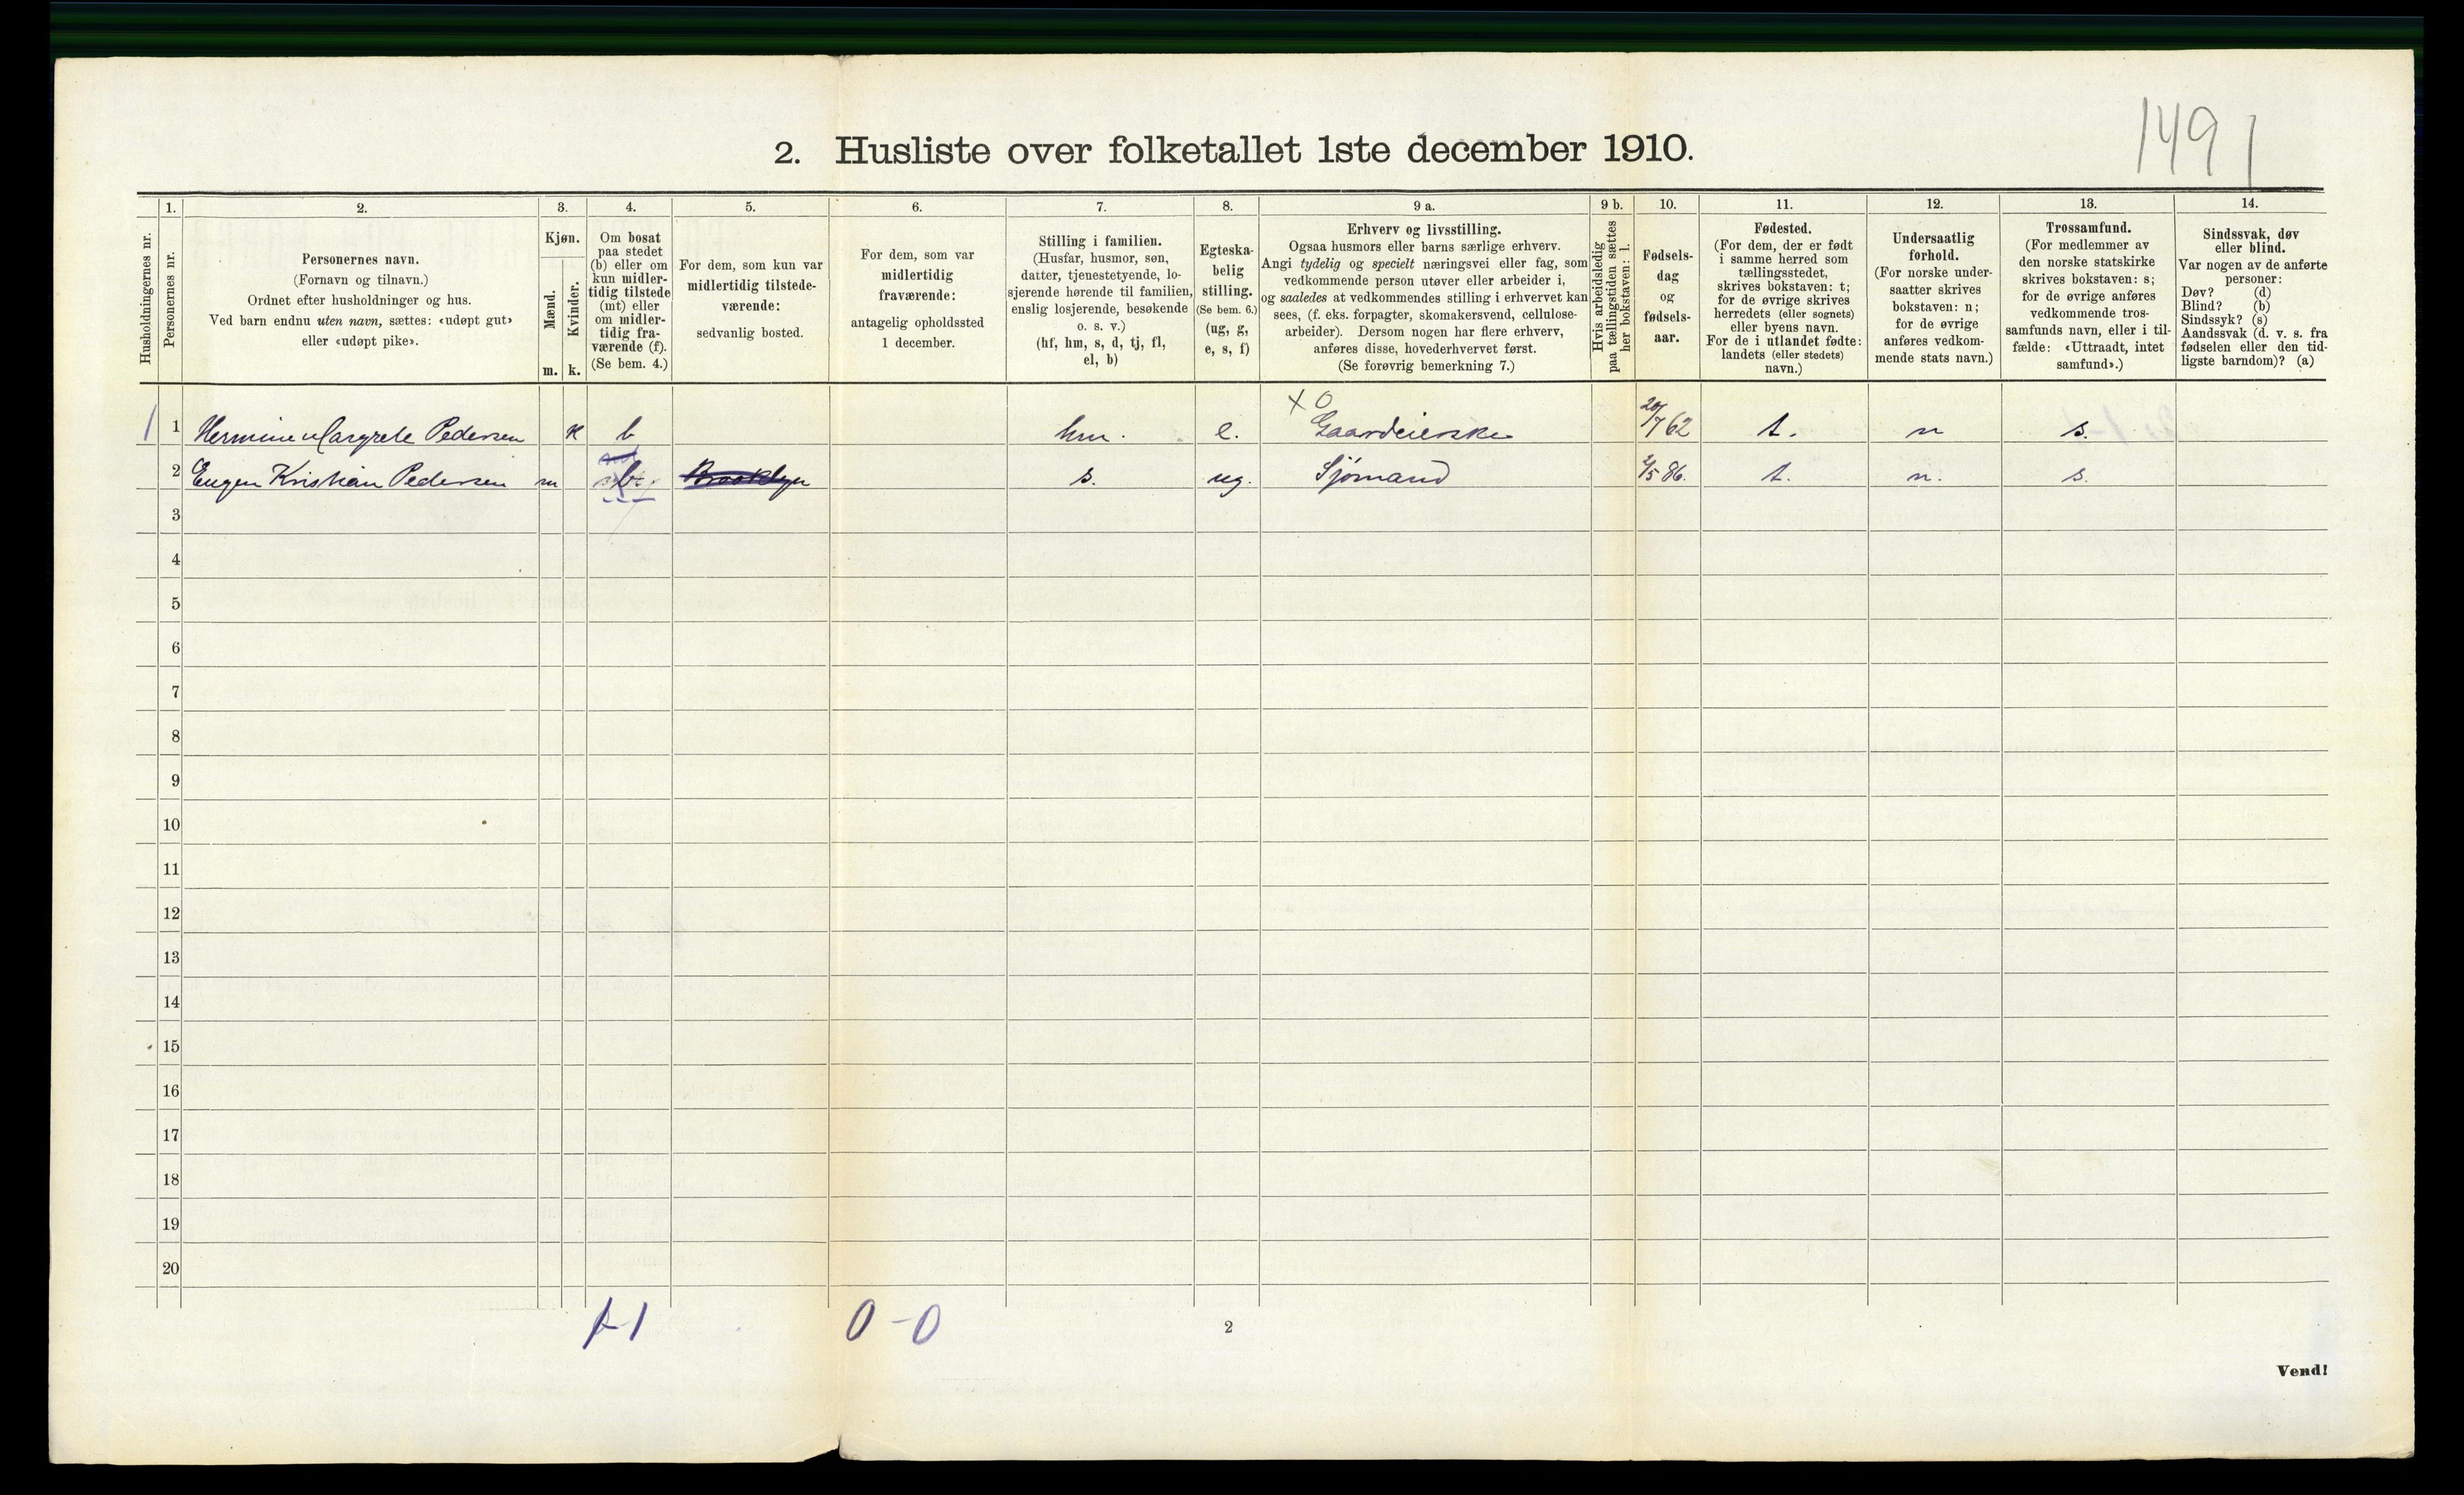 1491
2. Husliste over folketallet 1ste december 1910.
Husholdningernes nr.
1.
Personernes nr.
2.
Personernes navn.
(Fornavn og tilnavn.)
Ordnet efter husholdninger og hus.
Ved barn endnu uten navn, sættes: «udøpt gut»
eller «udøpt pike».
3.
Kjøn.
Mænd.
Kvinder.
m. k.
4.
Om bosat
paa stedet
(b) eller om
kun midler-
tidig tilstede
(mt) eller
om midler-
tidig fra-
værende (f).
(Se bem. 4.)
5.
For dem, som kun var
midlertidig tilstede-
værende:
sedvanlig bosted.
6.
For dem, som var
midlertidig
fraværende:
antagelig opholdssted
1 december.
7.
Stilling i familien.
(Husfar, husmor, søn,
datter, tjenestetyende, lo-
sjerende hørende til familien,
enslig losjerende, besøkende
o. s. v.)
(hf, hm, s, d, tj, fl,
el, b)
8.
Egteska-
belig
stilling.
(Se bem. 6.)
(ug, g,
e, s, f)
9 a.
Erhverv og livsstilling.
Ogsaa husmors eller barns særlige erhverv.
Angi tydelig og specielt næringsvei eller fag, som
vedkommende person utøver eller arbeider i,
og saaledes at vedkommendes stilling i erhvervet kan
sees, (f. eks. forpagter, skomakersvend, cellulose-
arbeider). Dersom nogen har flere erhverv,
anføres disse, hovederhvervet først.
(Se forøvrig bemerkning 7.)
9 b.
Hvis arbeidsledig
paa tællingstiden sættes
her bokstaven: l.
10.
Fødsels-
dag
og
fødsels-
aar.
11.
Fødested.
(For dem, der er født
i samme herred som
tællingsstedet,
skrives bokstaven: t;
for de øvrige skrives
herredets (eller sognets)
eller byens navn.
For de i utlandet fødte:
landets (eller stedets)
navn.)
12.
Undersaatlig
forhold.
(For norske under-
saatter skrives
bokstaven: n;
for de øvrige
anføres vedkom-
mende stats navn.)
13.
Trossamfund.
(For medlemmer av
den norske statskirke
skrives bokstaven: s;
for de øvrige anføres
vedkommende tros-
samfunds navn, eller i til-
fælde: «Uttraadt, intet
samfund».)
14.
Sindssvak, døv
eller blind.
Var nogen av de anførte
personer:
Døv? (d)
Blind? (b)
Sindssyk? (s)
Aandssvak (d. v. s. fra
fødselen eller den tid-
ligste barndom)? (a)
x 0
1 1 Hermine Margrete Pedersen k b hm. e. Gaardeierske 20/7 62 t. n s.
2 Eugen Kristian Pedersen m b Brooklyn s. ug. Sjømand 2/5 86. t. n. s.
3
4
5
6
7
8
9
10
11
12
13
14
15
16
17
18
19
20
1-1 0-0
2
Vend!